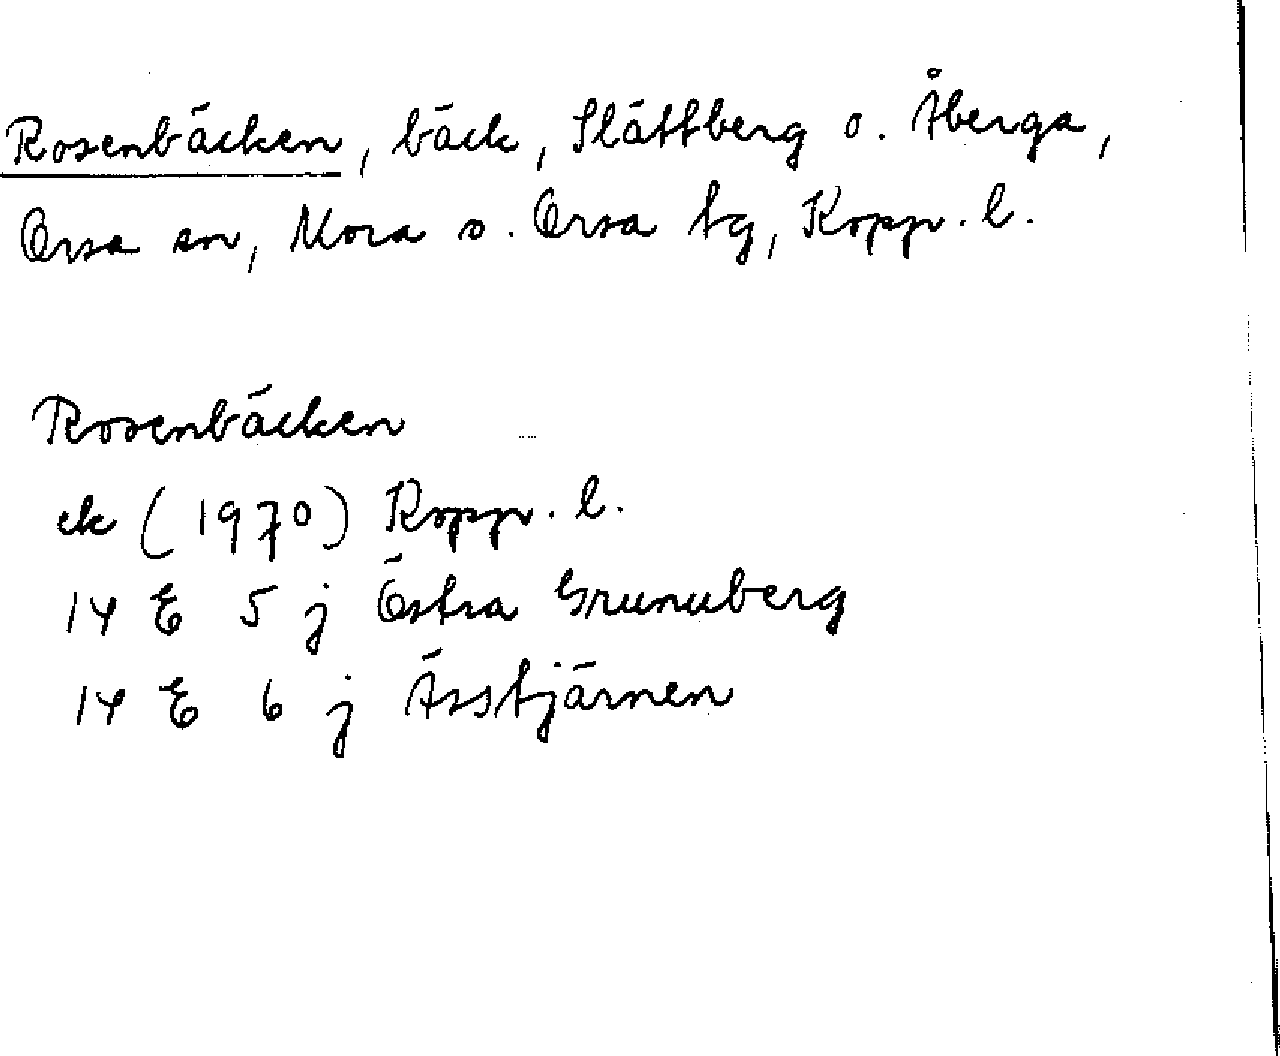 Rosenbäcken, bäck, Slättberg o. Åberga,
Orsa sn, Mora o. Orsa tg, Kopp. l.
Rosenbäcken
ek (1970) Kopp. l.
14 E 5 j Östra Grunuberg
14 E 6 j Ässtjärnen